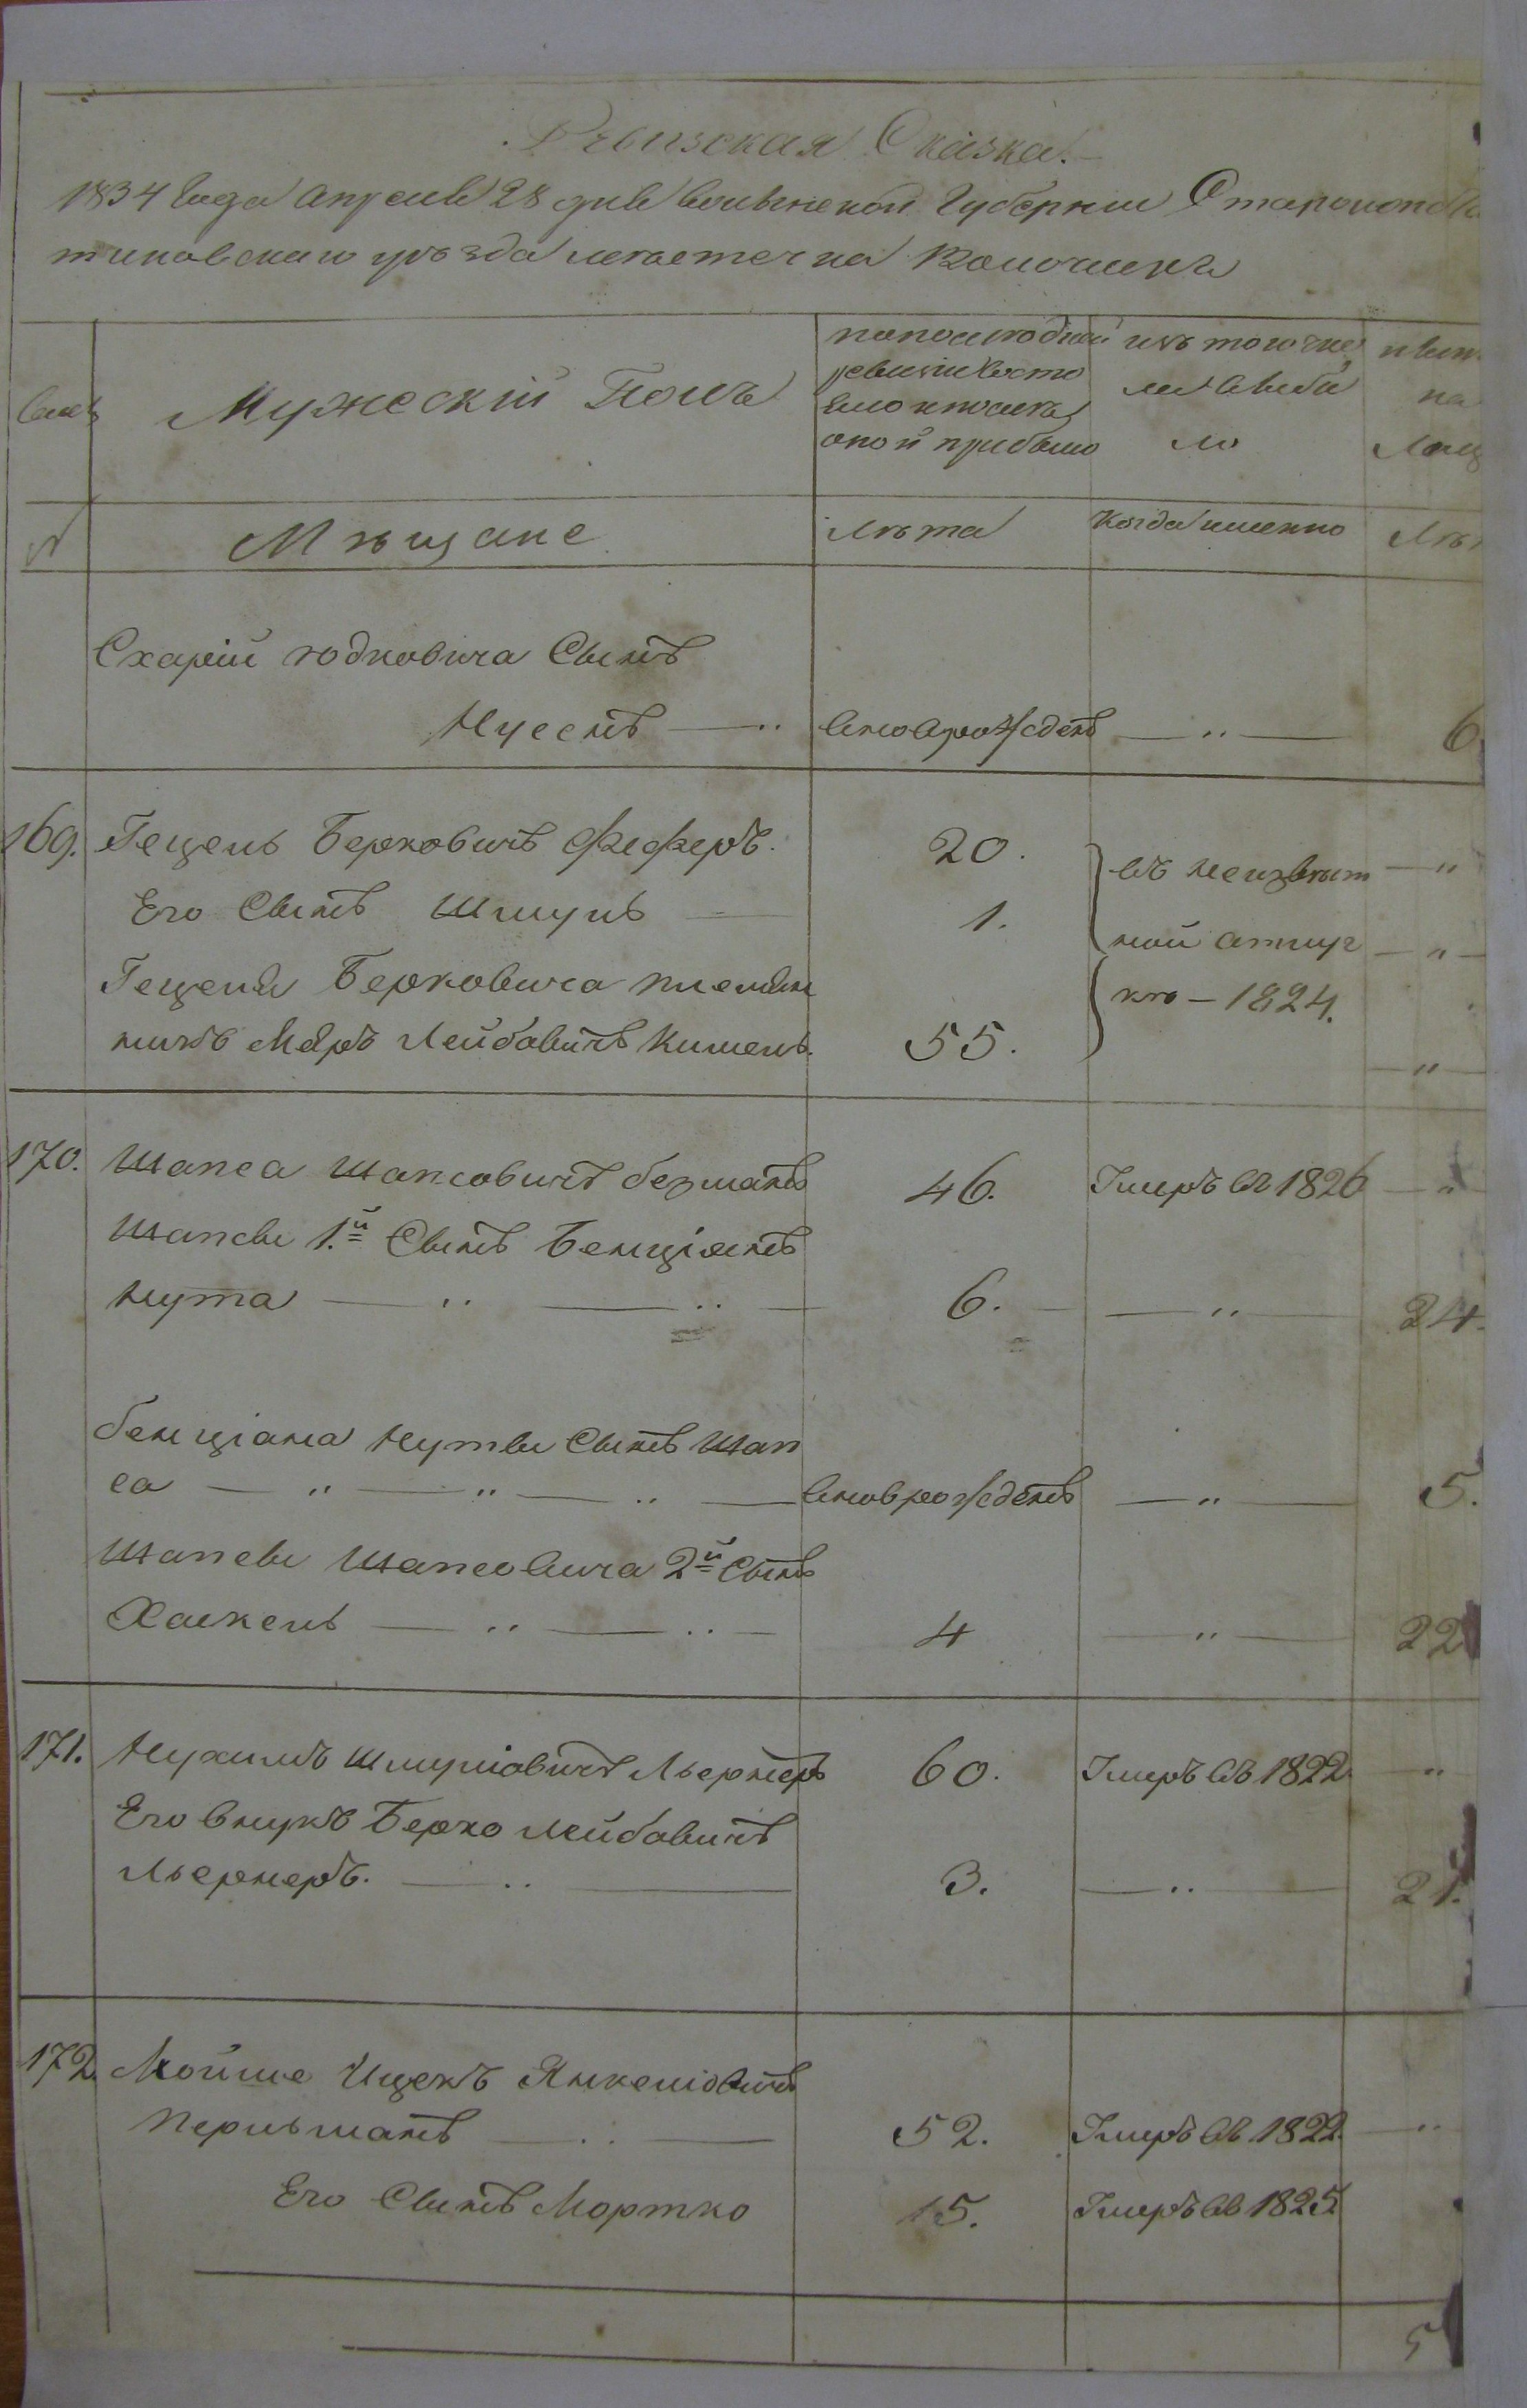 Ревизская Сказка.
1834 Года Апреля 28 дня Волынской Губернии Староконстан
тиновскаго уѣзда местечка Волочиска
Мужескій Полъ
попоследней
ревизіи состо
яло и после
оной прибыло
изъ того чис
ла выбы
ло
ны
на
лиц
№
Мѣщане
Лѣта
Когда именно
Лѣт
Схаріи Юдковича Сынъ
Нусенъ — " вновърожденъ — " — 6.
169. Гецель Берковичъ Феферъ. 20. въ неизвѣст — "
Его Сынъ Шмуль — 1. ной отлуч — " —
Геделя Берковича племян
кѣ — 1824.
никъ Меяръ Лейбовичъ Кишель. 55. — " —
170. Шапса Шапсовичъ безманъ 46. Умеръ въ 1826 — "
Шапсы 1.й Сынъ Бенціянъ
Нута — " — " — 6. — — " — 24.
бенціана Нуты Сынъ Шап
са — " — " — " — вновърожденъ — " — 5.
Шапсы Шапсовича 2й Сынъ
Хаскель — " — " — 4 — " — 22
171. Нухимъ Шмуліовичъ Льернеръ 60. Умеръ въ 1822. — "
Его внукъ Берко Лейбовичъ
Льернеръ. — " — 3. — " — 21.
172. Мойше Ицекъ Янкеліовичъ
Перльманъ — " — 52. Умеръ въ 1822. — "
Его Сынъ Мортко 15. Умеръ въ 1825
5